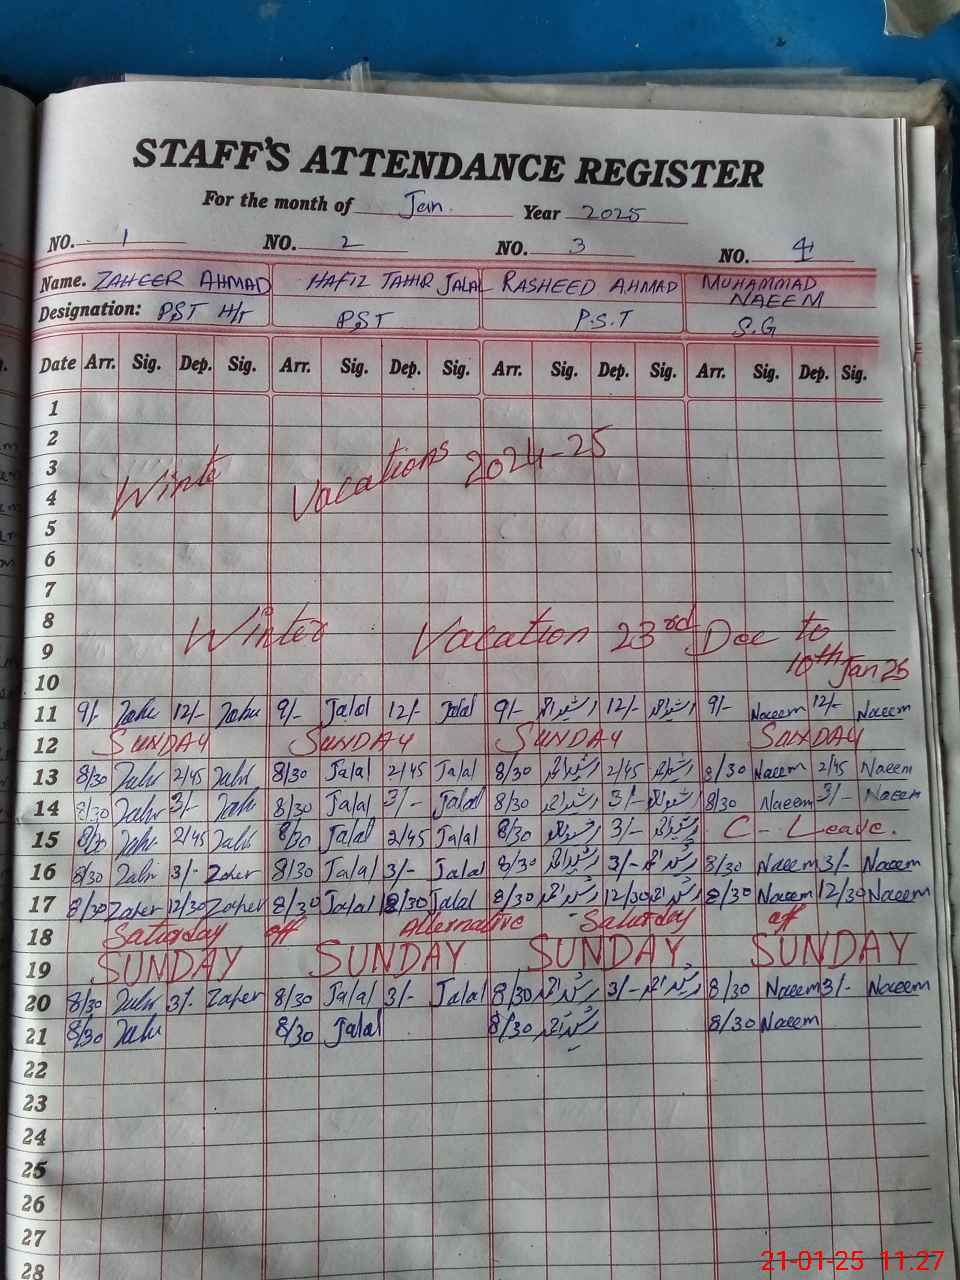 STAFF'S ATTENDANCE REGISTER
For the month of Jan. Year 2025
NO. 1 NO. 2 NO. 3 NO. 4
Name. ZAHEER AHMAD HAFIZ TAHIR JALAL RASHEED AHMAD MUHAMMAD NAEEM
Designation: PST H/T PST P.S.T S.G
Date Arr. Sig. Dep. Sig. Arr. Sig. Dep. Sig. Arr. Sig. Dep. Sig. Arr. Sig. Dep. Sig.
1
2
3 Winte Vacations 2024-25
4
5
6
7
8
9 Winter Vacation 23rd Dec to
10 10th Jan 25
11 9/- 12/- 9/- Jalal 12/- Jalal 9/- رشید احمد 12/- رشید احمد 9/- Naeem 12/- Naeem
12 SUNDAY SUNDAY SUNDAY SUNDAY
13 8/30 2/45 8/30 Jalal 2/45 Jalal 8/30 رشید احمد 2/45 رشید احمد 8/30 Naeem 2/45 Naeem
14 8/30 3/- 8/30 Jalal 3/- Jalal 8/30 رشید احمد 3/- رشید احمد 8/30 Naeem 3/- Naeem
15 8/30 2/45 8/30 Jalal 2/45 Jalal 8/30 رشید احمد 3/- رشید احمد C- Leave.
16 8/30 3/- Zaher 8/30 Jalal 3/- Jalal 8/30 رشید احمد 3/- رشید احمد 8/30 Naeem 3/- Naeem
17 8/30 Zaher 12/30 Zaher 8/30 Jalal /30 Jalal 8/30 رشید احمد 12/30 رشید احمد 8/30 Naeem 12/30 Naeem
18 Saturday off Alternative Saturday off
19 SUNDAY SUNDAY SUNDAY SUNDAY
20 8/30 3/- Zaher 8/30 Jalal 3/- Jalal 8/30 رشید احمد 3/- رشید احمد 8/30 Naeem 3/- Naeem
21 8/30 8/30 Jalal 8/30 رشید احمد 8/30 Naeem
22
23
24
25
26
27
28
21-01-25 11.27